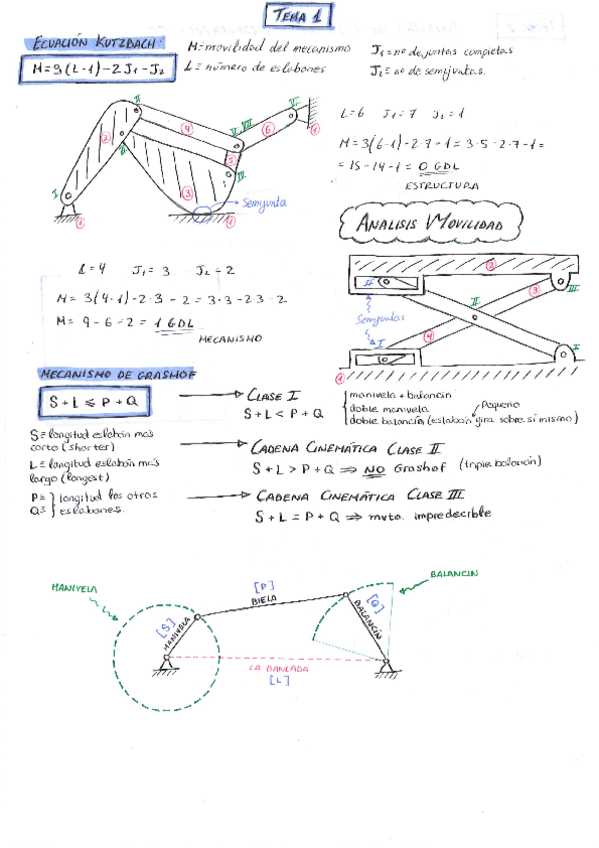 TEMA 1
ECUACIÓN KUTZBACH:
M=3(L-1)-2J1-J2
M=movilidad del mecanismo
L=número de eslabones
J1=nº de juntas completas
J2=nº de semijuntas.
L=6 J1=7 J2=1
M=3(6-1)-2·7-1=3·5-2·7-1=
=15-14-1=0 GDL
ESTRUCTURA
I
II
III
IV
V, VII
VI
1
2
3
4
5
6
1
1
Semijunta
ANALISIS MOVILIDAD
L=4 J1=3 J2=2
M=3(4-1)-2·3-2=3·3-2·3-2
M=9-6-2=1 GDL
MECANISMO
2
3
4
1
II
III
I
Semijuntas
MECANISMO DE GRASHOF
S+L≤P+Q
CLASE I
S+L<P+Q
manivela + balancín
doble manivela
pequeño
doble balancín (eslabón gira sobre sí mismo)
S=longitud eslabón más
corto (shorter)
L=longitud eslabón más
largo (longest)
P= longitud los otros
Q= eslabones.
CADENA CINEMÁTICA CLASE II
S+L>P+Q ⇒ NO Grashof (triple balancín)
CADENA CINEMÁTICA CLASE III
S+L=P+Q ⇒ mvto. impredecible
MANIVELA
[P]
BIELA
BALANCIN
[S]
MANIVELA
[Q]
BALANCÍN
LA BANCADA
[L]